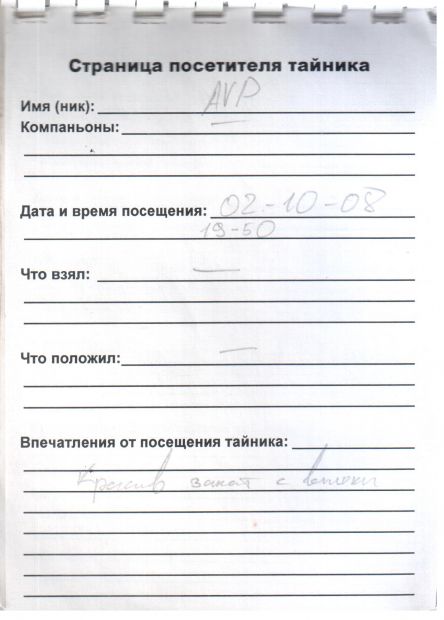 Страница посетителя тайника
Имя (ник): AVP
Компаньоны: —
Дата и время посещения: 02-10-08
19-50
Что взял: —
Что положил: —
Впечатления от посещения тайника:
Красив закат с